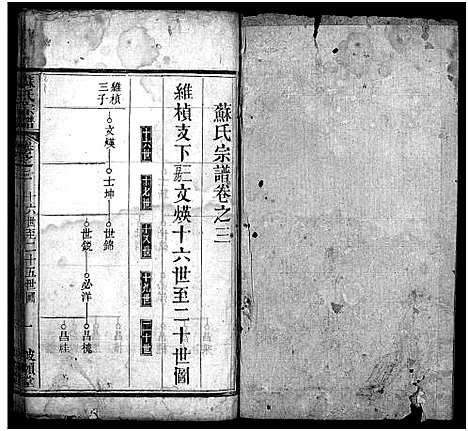 蘇氏宗譜卷之三
維楨支下三房文煐十六世至二十世圖
十六世
十七世
十八世
十九世
二十世
維楨三子
文煐
士坤
世錦
世銳
必洋
昌桃
昌桂
蘇氏宗譜
卷之三
十六世至二十五世圖
一